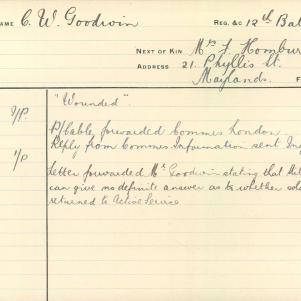 NAME C. W. Goodwin REG. &C 12th Bat
NEXT OF KIN Mrs F. Hombur
ADDRESS 21. Phyllis St.
Maylands.
"Wounded".
P/Cable forwarded Commes London
Reply from Commes Information sent
Letter forwarded Mr Goodwin stating that
can give no definite answer as to whether
returned to Active Service